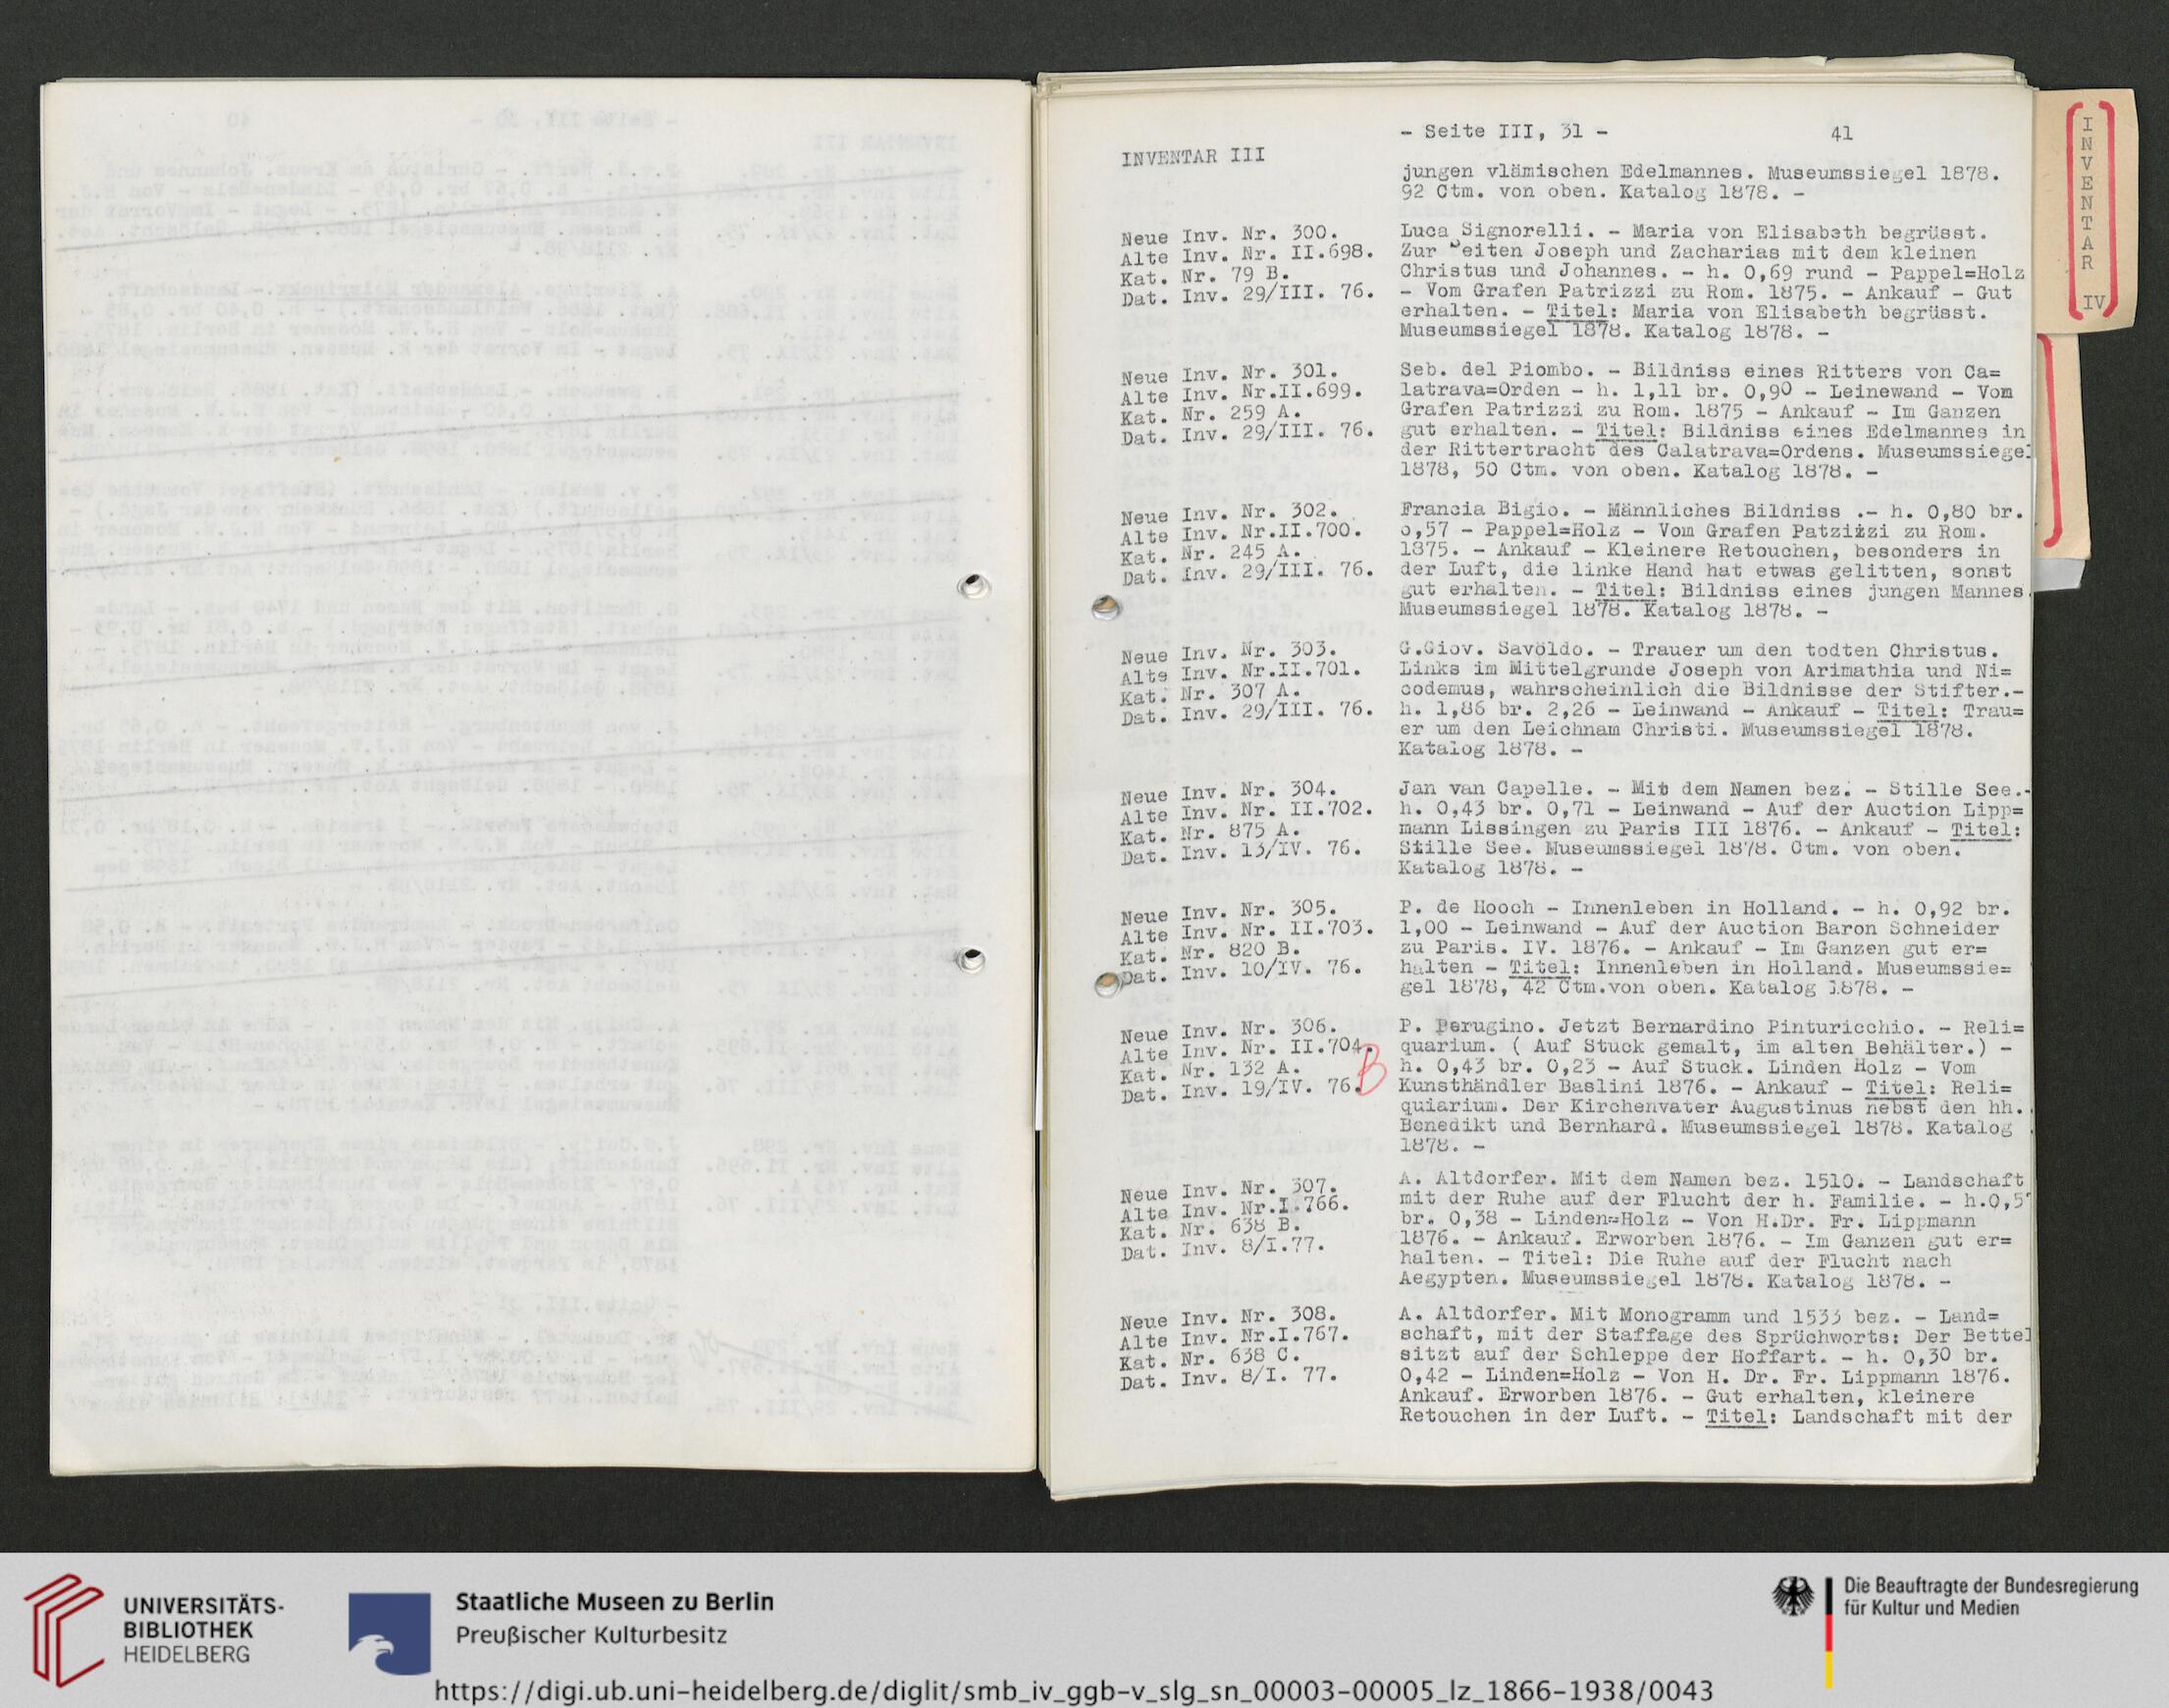 - Seite III, 31 -
41
INVENTAR III
jungen vlämischen Edelmannes. Museumssiegel 1878.
92 Ctm. von oben. Katalog 1878. -
Neue Inv. Nr. 300.
Alte Inv. Nr. II.698.
Kat. Nr. 79 B.
Dat. Inv. 29/III. 76.
Luca Signorelli. - Maria von Elisabeth begrüsst.
Zur Seiten Joseph und Zacharias mit dem kleinen
Christus und Johannes. - h. 0,69 rund - Pappel=Holz
- Vom Grafen Patrizzi zu Rom. 1875. - Ankauf - Gut
erhalten. - Titel: Maria von Elisabeth begrüsst.
Museumssiegel 1878. Katalog 1878. -
Neue Inv. Nr. 301.
Alte Inv. Nr.II.699.
Kat. Nr. 259 A.
Dat. Inv. 29/III. 76.
Seb. del Piombo. - Bildniss eines Ritters von Ca=
latrava=Orden - h. 1,11 br. 0,90 - Leinewand - Vom
Grafen Patrizzi zu Rom. 1875 - Ankauf - Im Ganzen
gut erhalten. - Titel: Bildniss eines Edelmannes in
der Rittertracht des Calatrava=Ordens. Museumssiegel
1878, 50 Ctm. von oben. Katalog 1878. -
Neue Inv. Nr. 302.
Alte Inv. Nr.II.700.
Kat. Nr. 245 A.
Dat. Inv. 29/III. 76.
Francia Bigio. - Männliches Bildniss .- h. 0,80 br.
0,57 - Pappel=Holz - Vom Grafen Patzizzi zu Rom.
1875. - Ankauf - Kleinere Retouchen, besonders in
der Luft, die linke Hand hat etwas gelitten, sonst
gut erhalten. - Titel: Bildniss eines jungen Mannes.
Museumssiegel 1878. Katalog 1878. -
Neue Inv. Nr. 303.
Alte Inv. Nr.II.701.
Kat. Nr. 307 A.
Dat. Inv. 29/III. 76.
G.Giov. Savoldo. - Trauer um den todten Christus.
Links im Mittelgrunde Joseph von Arimathia und Ni=
codemus, wahrscheinlich die Bildnisse der Stifter.-
h. 1,86 br. 2,26 - Leinwand - Ankauf - Titel: Trau=
er um den Leichnam Christi. Museumssiegel 1878.
Katalog 1878. -
Neue Inv. Nr. 304.
Alte Inv. Nr. II.702.
Kat. Nr. 875 A.
Dat. Inv. 13/IV. 76.
Jan van Capelle. - Mit dem Namen bez. - Stille See.-
h. 0,43 br. 0,71 - Leinwand - Auf der Auction Lipp=
mann Lissingen zu Paris III 1876. - Ankauf - Titel:
Stille See. Museumssiegel 1878. Ctm. von oben.
Katalog 1878. -
Neue Inv. Nr. 305.
Alte Inv. Nr. II.703.
Kat. Nr. 820 B.
Dat. Inv. 10/IV. 76.
P. de Hooch - Innenleben in Holland. - h. 0,92 br.
1,00 - Leinwand - Auf der Auction Baron Schneider
zu Paris. IV. 1876. - Ankauf - Im Ganzen gut er=
halten - Titel: Innenleben in Holland. Museumssie=
gel 1878, 42 Ctm.von oben. Katalog 1878. -
Neue Inv. Nr. 306.
Alte Inv. Nr. II.704.
Kat. Nr. 132 A.
Dat. Inv. 19/IV. 76.
B
P. Perugino. Jetzt Bernardino Pinturicchio. - Reli=
quarium. ( Auf Stuck gemalt, im alten Behälter.) -
h. 0,43 br. 0,23 - Auf Stuck. Linden Holz - Vom
Kunsthändler Baslini 1876. - Ankauf - Titel: Reli=
quiarium. Der Kirchenvater Augustinus nebst den hh.
Benedikt und Bernhard. Museumssiegel 1878. Katalog
1878. -
Neue Inv. Nr. 307.
Alte Inv. Nr.I.766.
Kat. Nr. 638 B.
Dat. Inv. 8/I.77.
A. Altdorfer. Mit dem Namen bez. 1510. - Landschaft
mit der Ruhe auf der Flucht der h. Familie. - h.0,5
br. 0,38 - Linden=Holz - Von H.Dr. Fr. Lippmann
1876. - Ankauf. Erworben 1876. - Im Ganzen gut er=
halten. - Titel: Die Ruhe auf der Flucht nach
Aegypten. Museumssiegel 1878. Katalog 1878. -
Neue Inv. Nr. 308.
Alte Inv. Nr.I.767.
Kat. Nr. 638 C.
Dat. Inv. 8/I. 77.
A. Altdorfer. Mit Monogramm und 1533 bez. - Land=
schaft, mit der Staffage des Sprüchworts: Der Bettel
sitzt auf der Schleppe der Hoffart. - h. 0,30 br.
0,42 - Linden=Holz - Von H. Dr. Fr. Lippmann 1876.
Ankauf. Erworben 1876. - Gut erhalten, kleinere
Retouchen in der Luft. - Titel: Landschaft mit der
INVENTAR IV
UNIVERSITÄTS-
BIBLIOTHEK
HEIDELBERG
Staatliche Museen zu Berlin
Preußischer Kulturbesitz
Die Beauftragte der Bundesregierung
für Kultur und Medien
https://digi.ub.uni-heidelberg.de/diglit/smb_iv_ggb-v_slg_sn_00003-00005_lz_1866-1938/0043